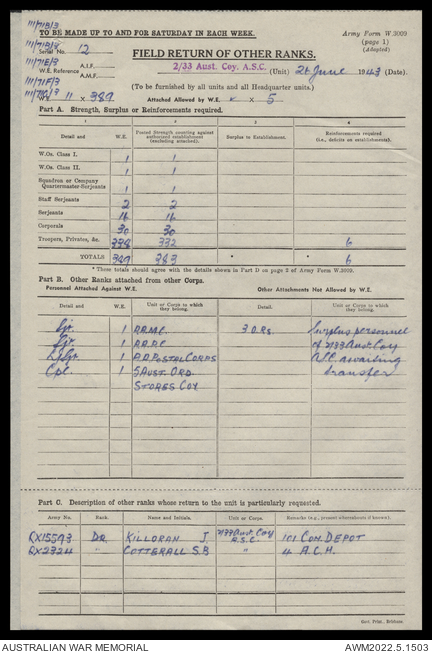 111/71B/3
TO BE MADE UP TO AND FOR SATURDAY IN EACH WEEK.
Army Form W.3009
(page 1)
(Adapted)
Serial No. 12
111/71E/3
W.E. Reference A.I.F.
A.M.F.
111/71F/3
11 x 389
FIELD RETURN OF OTHER RANKS.
2/33 Aust. Coy. A.S.C. (Unit) 26 June 1943 (Date).
(To be furnished by all units and all Headquarter units.)
Attached Allowed by W.E. x 5
Part A. Strength, Surplus or Reinforcements required.
1 2 3 4 5
Detail and W.E. Posted Strength counting against authorized establishment (excluding attached). Surplus to Establishment. Reinforcements required (i.e., deficits on establishment).
W.Os. Class I. 1 1
W.Os. Class II. 1 1
Squadron or Company
Quartermaster-Serjeants 1 1
Staff Serjeants 2 2
Serjeants 16 16
Corporals 30 30
Troopers, Privates, &c. 338 332 6
TOTALS 389 383 * * 6
* These totals should agree with the details shown in Part D on page 2 of Army Form W.3009.
Part B. Other Ranks attached from other Corps.
Personnel Attached Against W.E. Other Attachments Not Allowed by W.E.
Detail and W.E. Unit or Corps to which they belong. Detail. Unit or Corps to which they belong.
Sjt. 1 3 O.Rs. Surplus personnel
1 of 2/33 Aust Coy
1 POSTAL CORPS ASC awaiting
Cpl. 1 5 AUST. ORD. transfer
STORES COY
Part C. Description of other ranks whose return to the unit is particularly requested.
Army No. Rank. Name and Initials. Unit or Corps. Remarks (e.g., present whereabouts if known).
QX15593 DR. KILLORAN J. 2/33 Aust Coy A.S.C. 101 CON. DEPOT
QX2324 " COTTERALL S.B " 4 A.C.H.
Govt. Print., Brisbane
AUSTRALIAN WAR MEMORIAL AWM2022.5.1503